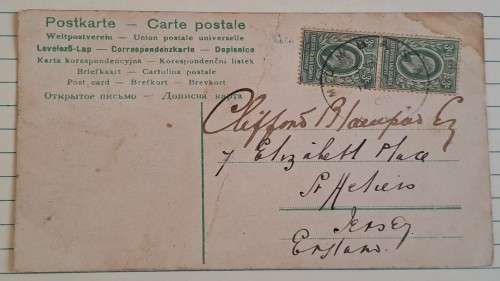 Postkarte – Carte postale
Weltpostverein – Union postale universelle
Levelező-Lap – Correspondenzkarte – Dopisnice
Karta korespondencyjna – Korespondenční listek
Briefkaart – Cartolina postale
Post card – Brefkort – Brevkort
Открытое письмо – Дописна карта
Clifford Blampied Esq
7 Elizabeth Place
St Heliers
Jersey
England.